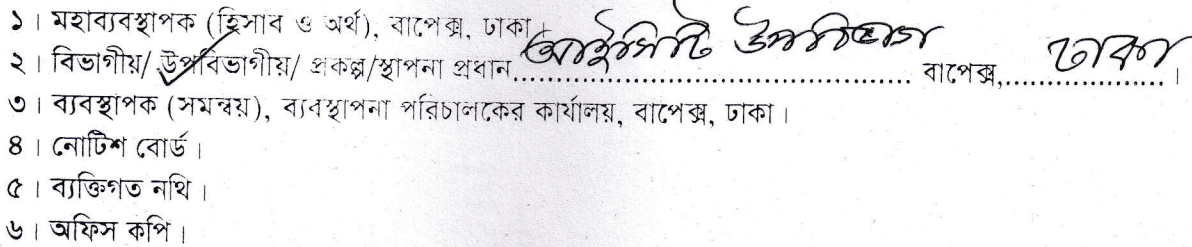 ১। মহাব্যবস্থাপক (হিসাব ও অর্থ), বাপেক্স, ঢাকা।
২। বিভাগীয়/ উপবিভাগীয়/ প্রকল্প/স্থাপনা প্রধান, আইসিটি উপবিভাগ বাপেক্স, ঢাকা।
৩। ব্যবস্থাপক (সমন্বয়), ব্যবস্থাপনা পরিচালকের কার্যালয়, বাপেক্স, ঢাকা।
৪। নোটিশ বোর্ড।
৫। ব্যক্তিগত নথি।
৬। অফিস কপি।